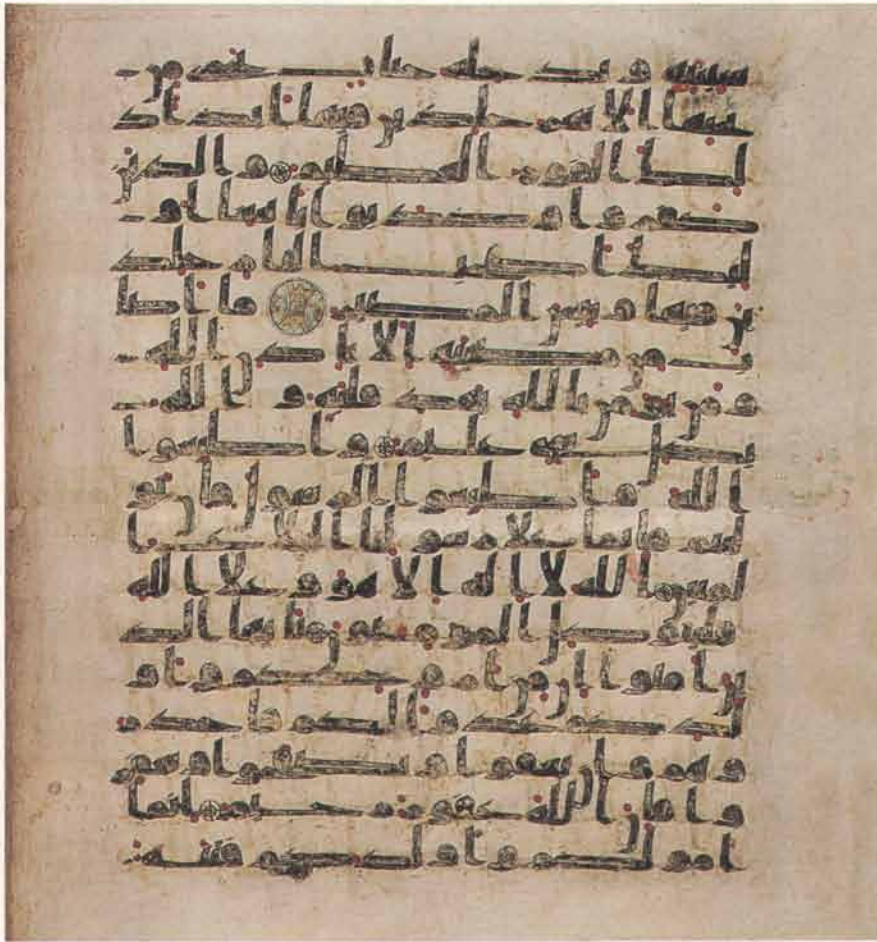 سيته ويدخله جنت تجري من
تحتها الانهر خلدين فيها ابدا ذ
لك الفوز العظيم والذين
كفروا وكذبوا بايتنا او
لئك اصحب النار خلد
ين فيها وبئس المصير ما اصا
ب من مصيبة الا باذن الله
ومن يؤمن بالله يهد قلبه والله
بكل شيء عليم واطيعوا
الله واطيعوا الرسول فان تو
ليتم فانما على رسولنا البلغ ا
لمبين الله لا اله الا هو وعلى الله
فليتوكل المؤمنون يايها الذ
ين امنوا ان من ازوجكم واو
لدكم عدوا لكم فاحذر
وهم وان تعفوا وتصفحوا وتغفر
وا فان الله غفور رحيم انما
امولكم واولدكم فتنة